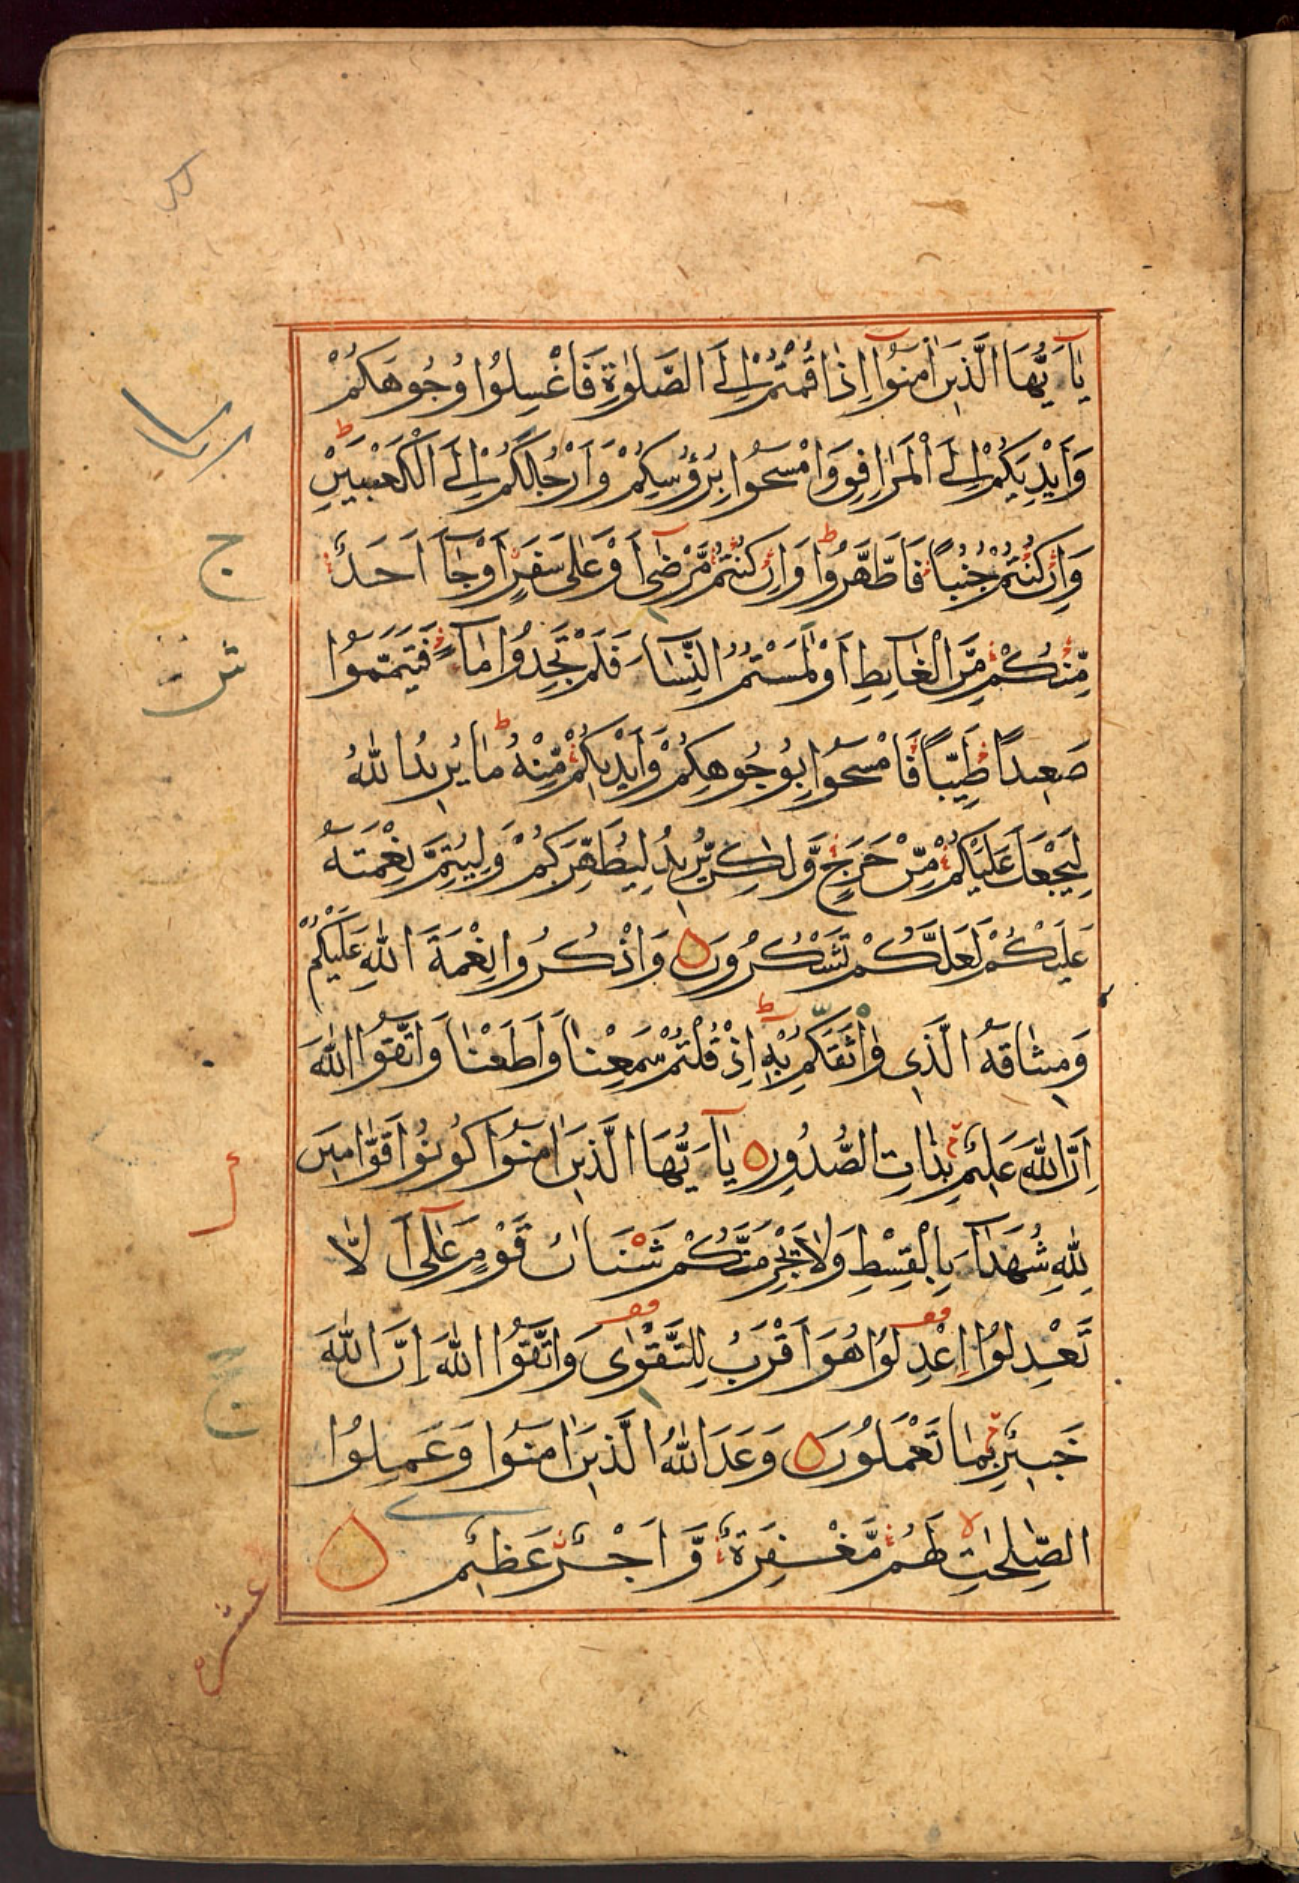 يٰاَۤيُّهَا الَّذِيْنَ اٰمَنُوْۤا اِذَا قُمْتُمْ اِلَى الصَّلٰوةِ فَاغْسِلُوْا وُجُوْهَكُمْ
وَاَيْدِيَكُمْ اِلَى الْمَرَافِقِ وَامْسَحُوْا بِرُؤُسِكُمْ وَاَرْجُلَكُمْ اِلَى الْكَعْبَيْنِ ط
وَاِنْ كُنْتُمْ جُنُبًا فَاطَّهَّرُوْا ط وَاِنْ كُنْتُمْ مَّرْضٰۤى اَوْ عَلٰى سَفَرٍ اَوْ جَآءَ اَحَدٌ
مِّنْكُمْ مِّنَ الْغَآئِطِ اَوْ لٰمَسْتُمُ النِّسَآءَ فَلَمْ تَجِدُوْا مَآءً فَتَيَمَّمُوْا
صَعِيْدًا طَيِّبًا فَامْسَحُوْا بِوُجُوْهِكُمْ وَاَيْدِيْكُمْ مِّنْهُ ط مَا يُرِيْدُ اللّٰهُ
لِيَجْعَلَ عَلَيْكُمْ مِّنْ حَرَجٍ وَّلٰكِنْ يُّرِيْدُ لِيُطَهِّرَكُمْ وَلِيُتِمَّ نِعْمَتَهُ
عَلَيْكُمْ لَعَلَّكُمْ تَشْكُرُوْنَ وَاذْكُرُوْا نِعْمَةَ اللّٰهِ عَلَيْكُمْ
وَمِيْثَاقَهُ الَّذِيْ وَاثَقَكُمْ بِهٖۤ ط اِذْ قُلْتُمْ سَمِعْنَا وَاَطَعْنَا وَاتَّقُوا اللّٰهَ
اِنَّ اللّٰهَ عَلِيْمٌ بِذَاتِ الصُّدُوْرِ يٰاَۤيُّهَا الَّذِيْنَ اٰمَنُوْا كُوْنُوْا قَوّٰامِيْنَ
لِلّٰهِ شُهَدَآءَ بِالْقِسْطِ وَلَا يَجْرِمَنَّكُمْ شَنَاٰنُ قَوْمٍ عَلٰۤى اَ لَّا
تَعْدِلُوْا اِعْدِلُوْا هُوَ اَقْرَبُ لِلتَّقْوٰى وَاتَّقُوا اللّٰهَ اِنَّ اللّٰهَ
خَبِيْرٌ بِمَا تَعْمَلُوْنَ وَعَدَ اللّٰهُ الَّذِيْنَ اٰمَنُوْا وَعَمِلُوا
الصّٰلِحٰتِ لا لَهُمْ مَّغْفِرَةٌ وَّاَجْرٌ عَظِيْمٌ
ج
ش
ج
عشره